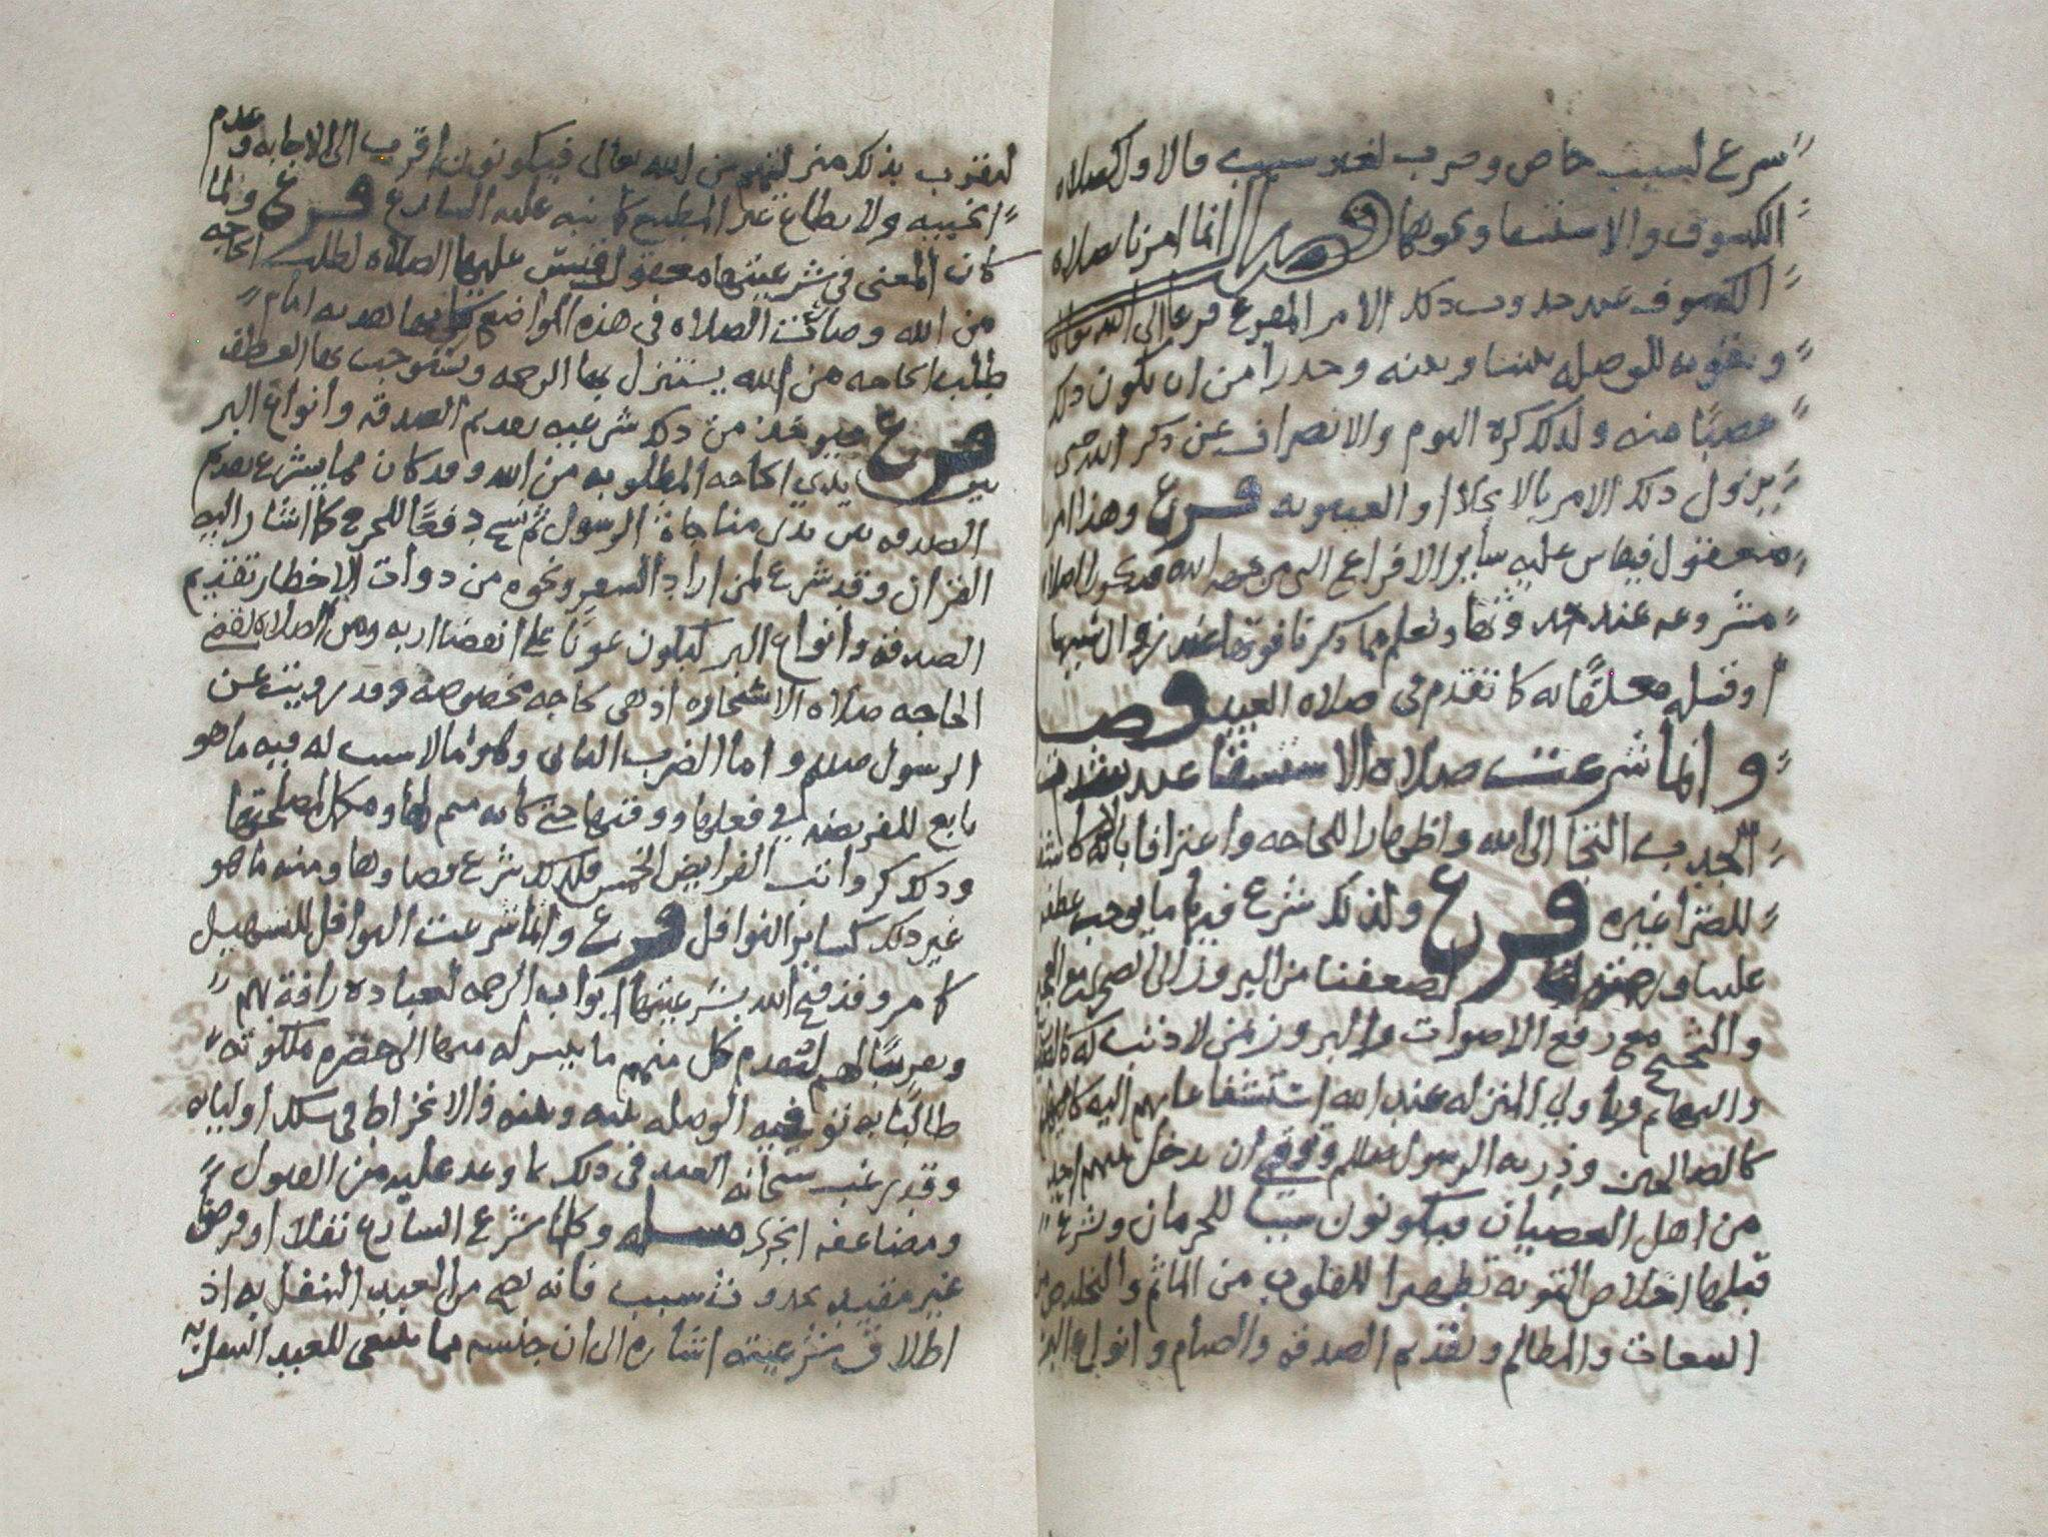 شرع لسبب خاص وضرب لغير سبب فالاول كصلاه
الكسوف والاستسقا ونحوهما فصل انما امرنا بصلاه
الكسوف عند حدوث ذلك الامر المفزع فزعا الى الله تعالى
وتقويه للوصله بيننا وبينه وحذرا من ان يكون ذلك
غضبًا منه ولذلك كره النوم والانصراف عن ذكر الله حتى
يزول ذلك الامر بالانجلا او الغيبوبه فرع وهذا امر
معقول فيقاس عليه سائر الافزاع الله الصلاه
مشروعه عند حدوثها وتعلم مما ذكرنا فوتها عند زوال سببها
او قبله معلقا به كما تقدم في صلاه العيد فصل
وانما شرعت صلاه الاستسقا عند
الجدب التجا الى الله واظهارا للحاجه واعترافا بانه لا كاشف
للضر غيره فرع ولذلك شرع فيها ما يوجب عطفه
علينا و لضعفنا من البروز الى الصحرا مع العج
والثج مع رفع الاصوات والبروز بمن لا ذنب له كالاطفال
والبهايم وباولي المنزله عند الله استشفاعا بهم اليه
كالصالحين وذريه الرسول صلعم وتوقي ان يدخل معهم احد
من اهل العصيان فيكونون سببا للحرمان وشرع
قبلها اخلاص التوبه تطهيرا للقلوب من الماثم والتخلص من
التبعات والمظالم وتقديم الصدقه والصيام وانواع البر
ليقترب بذلك منزلتهم من الله تعالى فيكونون اقرب الى الاجابه وعدم
الخيبه ولا يطاع غير المطيع كما نبه عليه الشارع فرع ولما
كان المعنى في شرعيتها معقولا قيس عليها الصلاه لطلب الحاجه
من الله وصارت الصلاه في هذه المواضع كانها هديه امام
طلب الحاجه من الله يستنزل بها الرحمه ويستوجب بها العطف
فرع فيؤخذ من ذلك شرعيه تقديم الصدقه وانواع البر
بين يدي الحاجه المطلوبه من الله وقد كان مما يشرع تقديم
الصدقه بين يدي مناجاة الرسول ثم نسخ دفعًا للحرج كما اشار اليه
القران وقد شرع لمن اراد السفر ونحوه من ذوات الاخطار تقديم
الصدقه وانواع البر ليكون عونًا على انقضا اربه ومن الصلاه لقضى
الحاجه صلاه الاستخاره اذ هي لحاجه مخصوصه وقد رويت عن
الرسول صلعم واما الضرب الثاني وهو ما لا سبب له فيه ما هو
تابع للفريضه في فعلها ووقتها حتى كانه متمم لها ومكمل لمصلحتها
وذلك كرواتب الفرايض الخمس فلذلك شرع قضاوها ومنه ما هو
غير ذلك كساير النوافل فرع وانما شرعت النوافل للتسهيل
كما مر وقد فتح الله بشرعيتها ابواب الرحمه لعباده رافة بهم
وتعريضًا لهم ليتقدم كل منهم ما تيسر له منها الى حضره ملكوته
طالبًا به توفيه الوصله بينه وبينه والانخراط في سلك اوليائه
وقد رغب سبحانه العبد في ذلك بما وعد عليه من القبول
ومضاعفه الجزا مسله وكلما شرع الشارع نفلا او فرضا
غير مقيد بحدوث سبب فانه يصح من العبد التنفل به اذ
اطلاق شرعيته اشاره الى ان جنسه مما ينبغي للعبد التقرب به